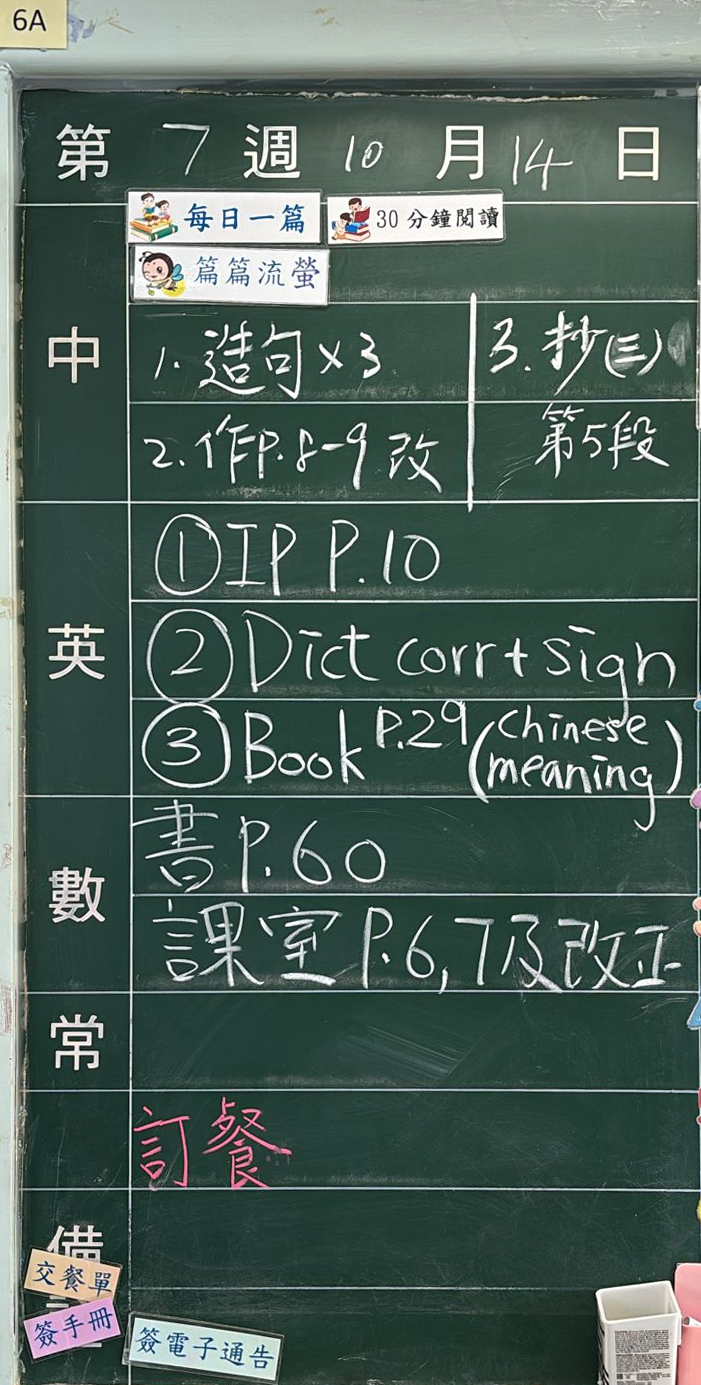 6A
第 7 週 10 月 14 日
每日一篇 30分鐘閱讀
篇篇流螢
中
1. 造句×3
2. 作P.8-9 改
3. 抄(三)
第5段
英
① IP P.10
② Dict corr + sign
③ Book P.29 (Chinese meaning)
數
書 P.60
課室 P.6,7及改正
常
訂餐
備
交餐單
簽手冊
簽電子通告